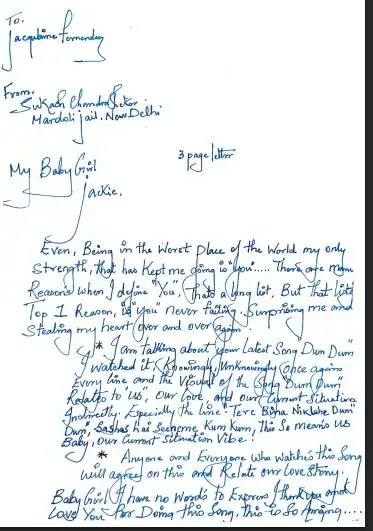 To,
Jacqueline Fernandez
From,
Sukash Chandrasekar
Mandoli jail, New Delhi
3 page letter
My Baby Girl
Jackie,
Even, Being in the Worst Place of the World my only
Strength, that has Kept me going is "you"..... There are many
Reasons when I define "You", that's a long list, But that list's
Top 1 Reason, is "you" never failing, Surprising me and
Stealing my heart over and over again.
* I am talking about your Latest Song "Dum Dum"
I watched it, Knowingly, Unknowingly once again
Every line and the Visual of the Song "Dum Dum"
Relates to 'us', Our love, and our Current Situation
Indirectly. Especially the line "Tere Bina Niklahe Dum"
Dum, Sashas hai Seenome Kum Kum, this so means us
Baby, Our Current Situation Vibe!
* Anyone and Everyone who watches this Song
will agree on this and Relate our Love Story.
Baby Girl I have no Words to Express, I thank you and
Love You For Doing this Song, this is So Amazing....